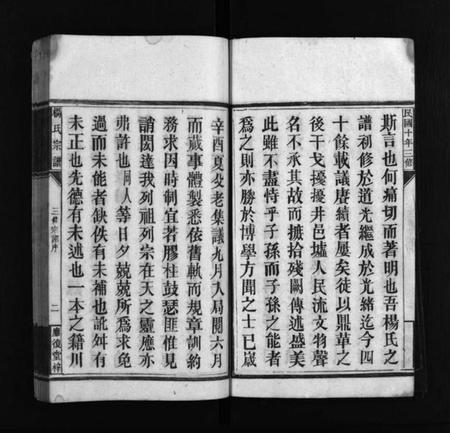 民國十年三修
斯言也何痛切而著明也吾楊氏之
譜剏修於道光繼成於光緒迄今四
十餘載議賡續者屢矣徒以鼎革之
後干戈擾攘井邑墟人民流文物聲
名不承其故而摭拾殘闕傳述盛美
此雖不盡恃乎子孫而子孫之能者
為之則亦勝於博學方聞之士已歲
辛酉夏父老集議九月入局閱六月
而蕆事體製悉依舊軌而規章訓約
務求因時制宜若膠柱鼓瑟匪惟見
誚閎達我列祖列宗在天之靈應亦
弗許也同人等日夕兢兢所為求免
過而未能者缺佚有未補也訛舛有
未正也先德有未述也一本之籍川
楊氏宗譜
三修宗譜序
二
堂梓